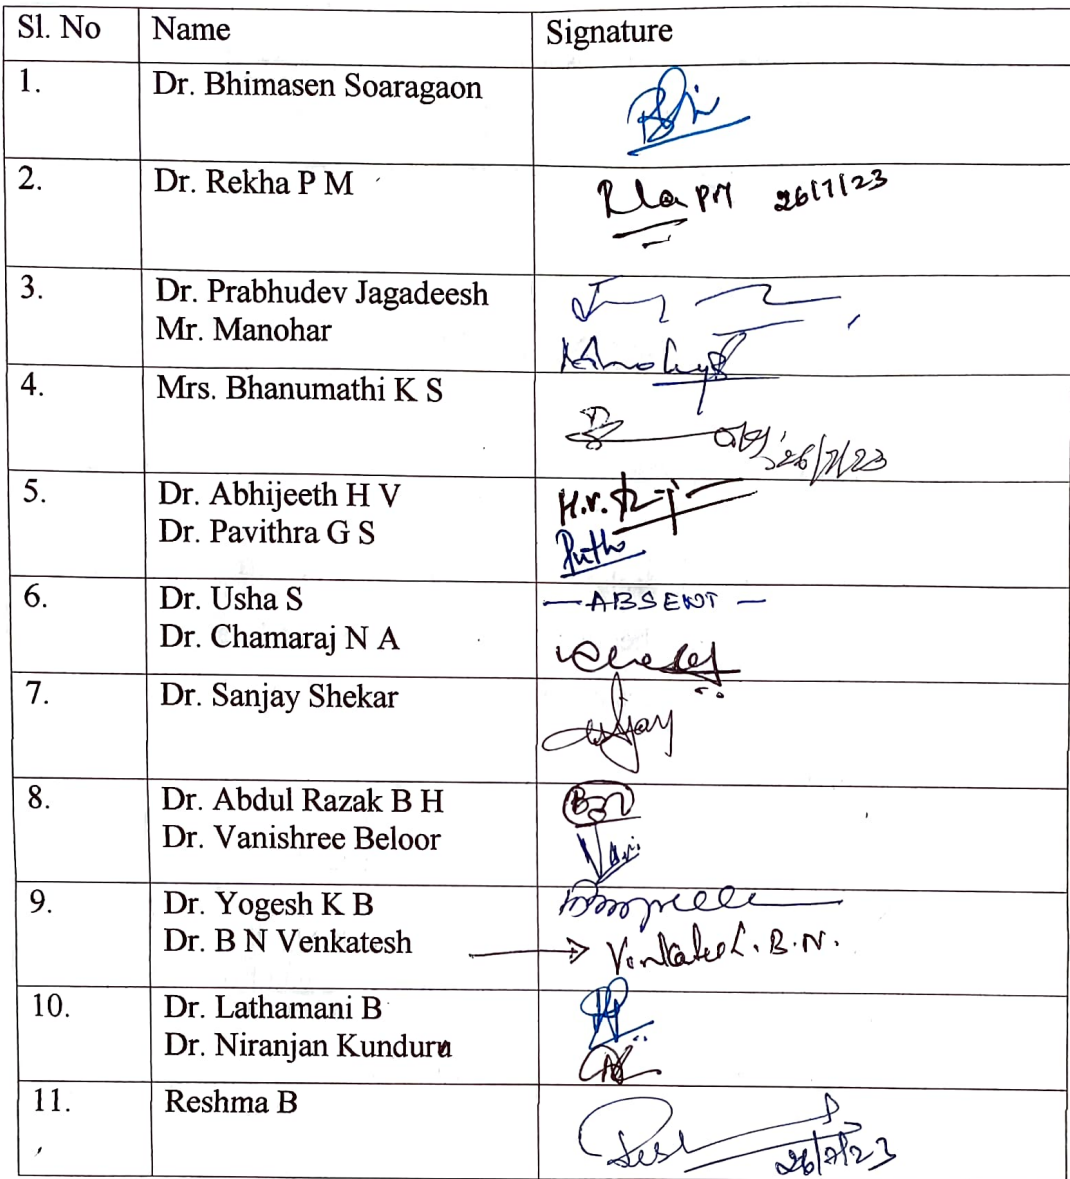 Sl. No Name Signature
1. Dr. Bhimasen Soaragaon
2. Dr. Rekha P M PM 26/7/23
3. Dr. Prabhudev Jagadeesh
Mr. Manohar
4. Mrs. Bhanumathi K S
26/7/23
5. Dr. Abhijeeth H V H.V.
Dr. Pavithra G S
6. Dr. Usha S — ABSENT —
Dr. Chamaraj N A
7. Dr. Sanjay Shekar
8. Dr. Abdul Razak B H
Dr. Vanishree Beloor
9. Dr. Yogesh K B
Dr. B N Venkatesh Venkatesh. B. N.
10. Dr. Lathamani B
Dr. Niranjan Kunduru
11. Reshma B
26/7/23